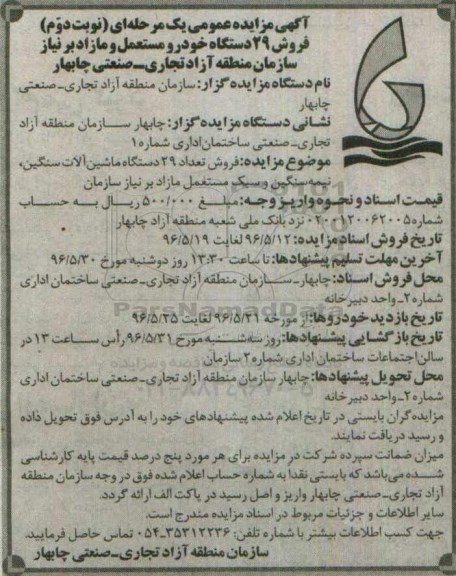 آگهی مزایده عمومی یک مرحله‌ای (نوبت دوم)
فروش ۲۹ دستگاه خودرو مستعمل و مازاد بر نیاز
سازمان منطقه آزاد تجاری_صنعتی چابهار
نام دستگاه مزایده گزار: سازمان منطقه آزاد تجاری_صنعتی
چابهار
نشانی دستگاه مزایده گزار: چابهار سازمان منطقه آزاد
تجاری_صنعتی ساختمان اداری شماره ۱
موضوع مزایده: فروش تعداد ۲۹ دستگاه ماشین آلات سنگین،
نیمه سنگین و سبک مستعمل مازاد بر نیاز سازمان
قیمت اسناد و نحوه واریز وجه: مبلغ ۵۰۰/۰۰۰ ریال به حساب
شماره ۰۲۰۰۱۲۰۰۶۲۰۰۵ نزد بانک ملی شعبه منطقه آزاد چابهار
تاریخ فروش اسناد مزایده: ۹۶/۵/۱۲ لغایت ۹۶/۵/۱۹
آخرین مهلت تسلیم پیشنهادها: تا ساعت ۱۳:۳۰ روز دوشنبه مورخ ۹۶/۵/۳۰
محل فروش اسناد: چابهار_سازمان منطقه آزاد تجاری_صنعتی ساختمان اداری
شماره ۲_واحد دبیرخانه
تاریخ بازدید خودروها: از مورخه ۹۶/۵/۲۱ لغایت ۹۶/۵/۲۵
تاریخ بازگشایی پیشنهادها: روز سه شنبه مورخ ۹۶/۵/۳۱ رأس ساعت ۱۳ در
سالن اجتماعات ساختمان اداری شماره ۲ سازمان
محل تحویل پیشنهادها: چابهار سازمان منطقه آزاد تجاری_صنعتی ساختمان اداری
شماره ۲_واحد دبیرخانه
مزایده گران بایستی در تاریخ اعلام شده پیشنهادهای خود را به آدرس فوق تحویل داده
و رسید دریافت نمایند.
میزان ضمانت سپرده شرکت در مزایده برای هر مورد پنج درصد قیمت پایه کارشناسی
شده می‌باشد که بایستی نقدا به شماره حساب اعلام شده فوق در وجه سازمان منطقه
آزاد تجاری_صنعتی چابهار واریز و اصل رسید در پاکت الف ارائه گردد.
سایر اطلاعات و جزئیات مربوط در اسناد مزایده مندرج است.
جهت کسب اطلاعات بیشتر با شماره تلفن: ۳۵۳۱۲۲۳۶_۰۵۴ تماس حاصل فرمایید.
سازمان منطقه آزاد تجاری_صنعتی چابهار